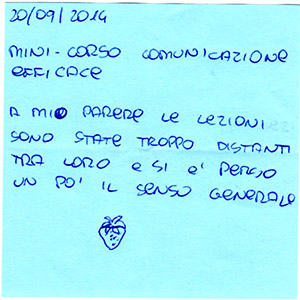 20/09/2014
MINI-CORSO COMUNICAZIONE
EFFICACE
A MIO PARERE LE LEZIONI
SONO STATE TROPPO DISTANTI
TRA LORO E SI E' PERSO
UN PO' IL SENSO GENERALE